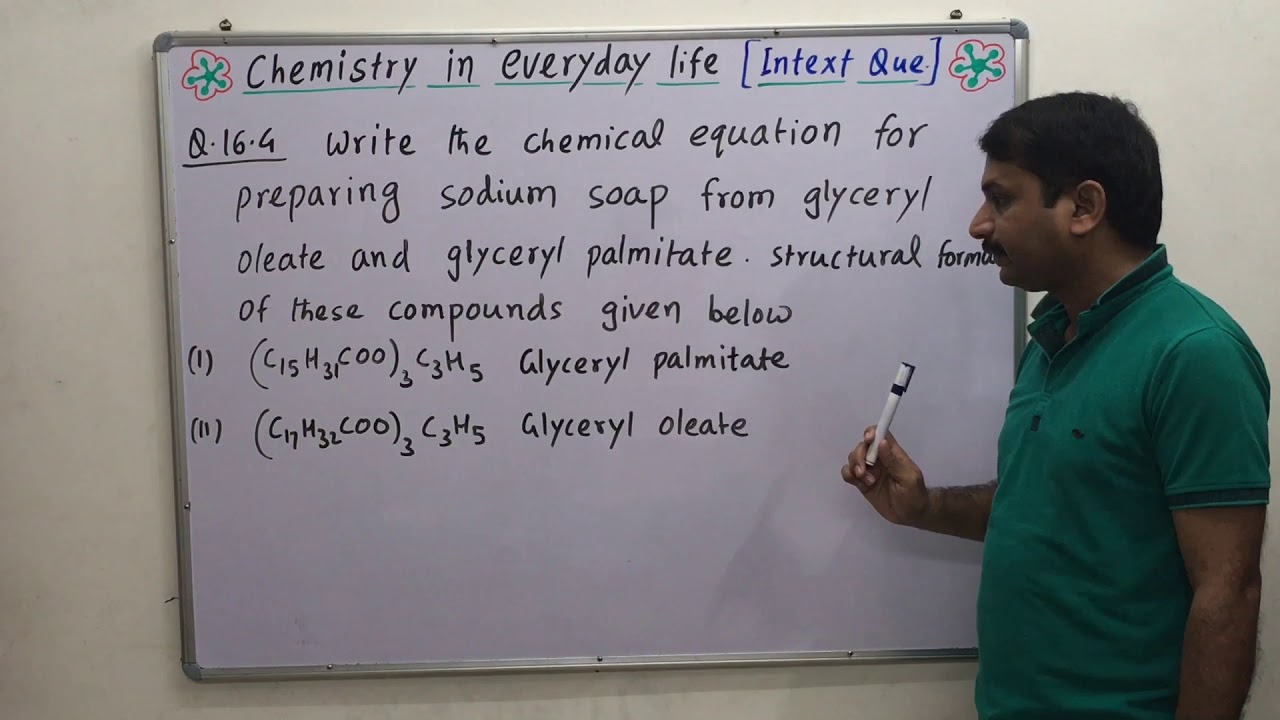 Chemistry in everyday life [Intext Que.]
Q.16.4 Write the chemical equation for
preparing sodium soap from glyceryl
oleate and glyceryl palmitate. structural
of these compounds given below
(I) (C₁₅H₃₁COO)₃C₃H₅ Glyceryl palmitate
(II) (C₁₇H₃₂COO)₃C₃H₅ Glyceryl oleate